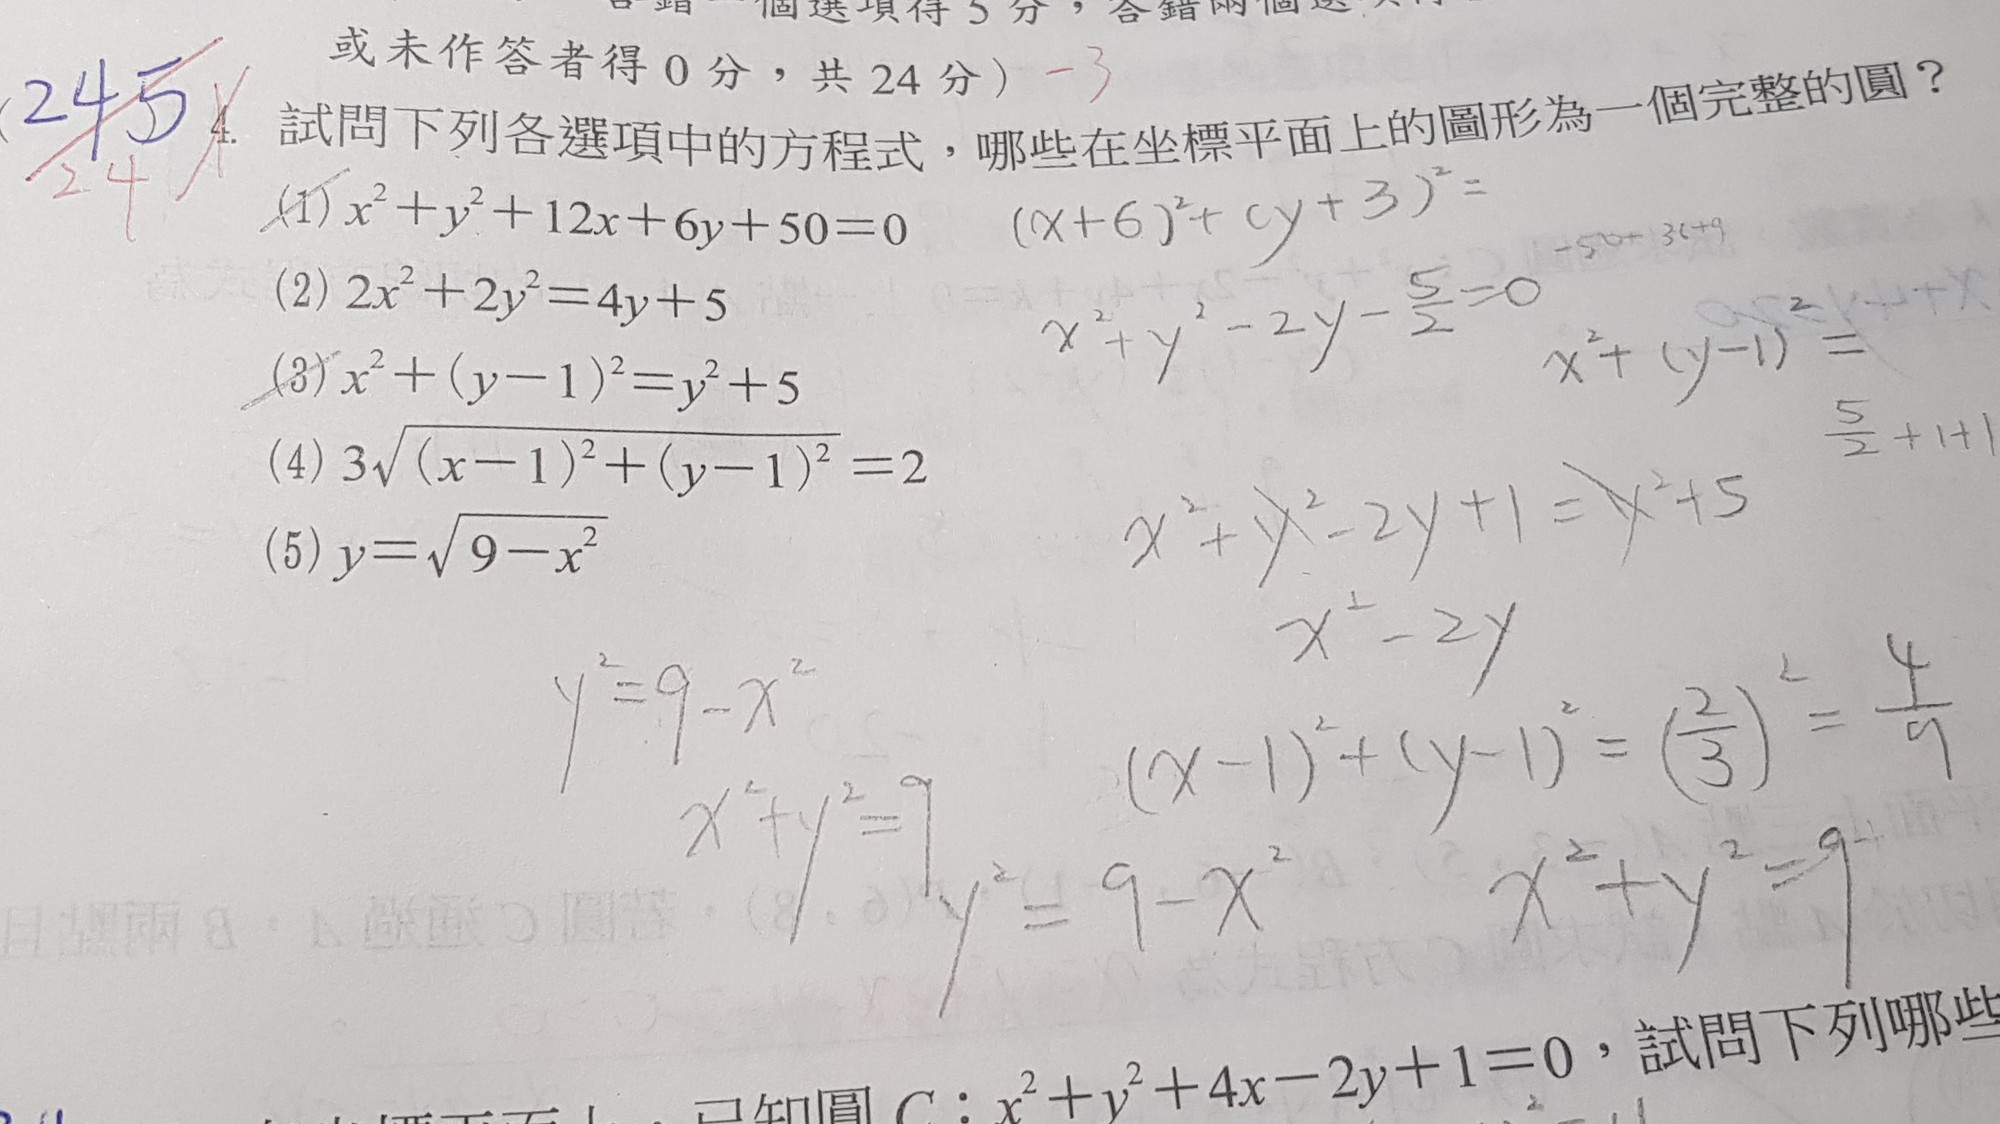 答錯一個選項得 5 分，答錯兩個選項得
或未作答者得 0 分，共 24 分） -3
245
24
4. 試問下列各選項中的方程式，哪些在坐標平面上的圖形為一個完整的圓？
(1) x²+y²+12x+6y+50=0
(x+6)²+(y+3)²=
-50+36+9
(2) 2x²+2y²=4y+5
x²+y²-2y-5/2=0
x²+(y-1)²=
5/2+1+1
(3) x²+(y-1)²=y²+5
(4) 3√((x-1)²+(y-1)²)=2
x²+y²-2y+1=y²+5
(5) y=√(9-x²)
x²-2y
y²=9-x²
(x-1)²+(y-1)²=(2/3)²=4/9
x²+y²=9
y²=9-x²
x²+y²=9
已知圓 C：x²+y²+4x-2y+1=0，試問下列哪些